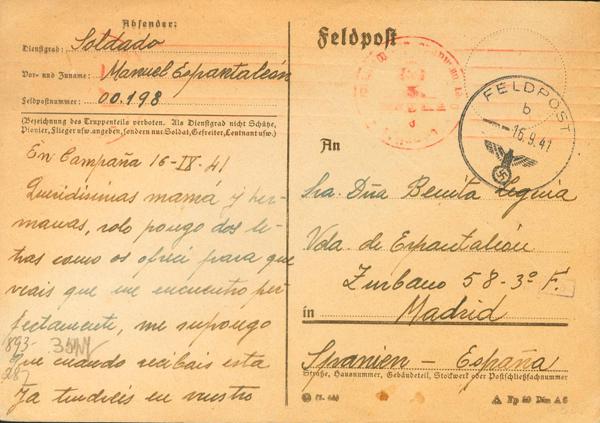 Absender:
Dienstgrad: Soldado
Vor- und Zuname: Manuel Espantaleón
Feldpostnummer: 00.198
(Bezeichnung des Truppenteils verboten. Als Dienstgrad nicht Schütze,
Pionier, Flieger usw. angeben, sondern nur Soldat, Gefreiter, Leutnant usw.)
En Campaña 16-IX-41
Queridisimas mamá y her-
manas, solo pongo dos le-
tras como os ofrecí para que
veais que me encuentro per-
fectamente, me supongo
que cuando recibais esta
Ya tendreis en vuestro
893-
987
Feldpost
FELDPOST
b
-16.9.41
An
Sra. Dña Benita Leguia
Vda. de Espantaleón
Zurbano 58-3º F.
in Madrid
Spanien - España
Straße, Hausnummer, Gebäudeteil, Stockwerk oder Postschließfachnummer
Din A 6